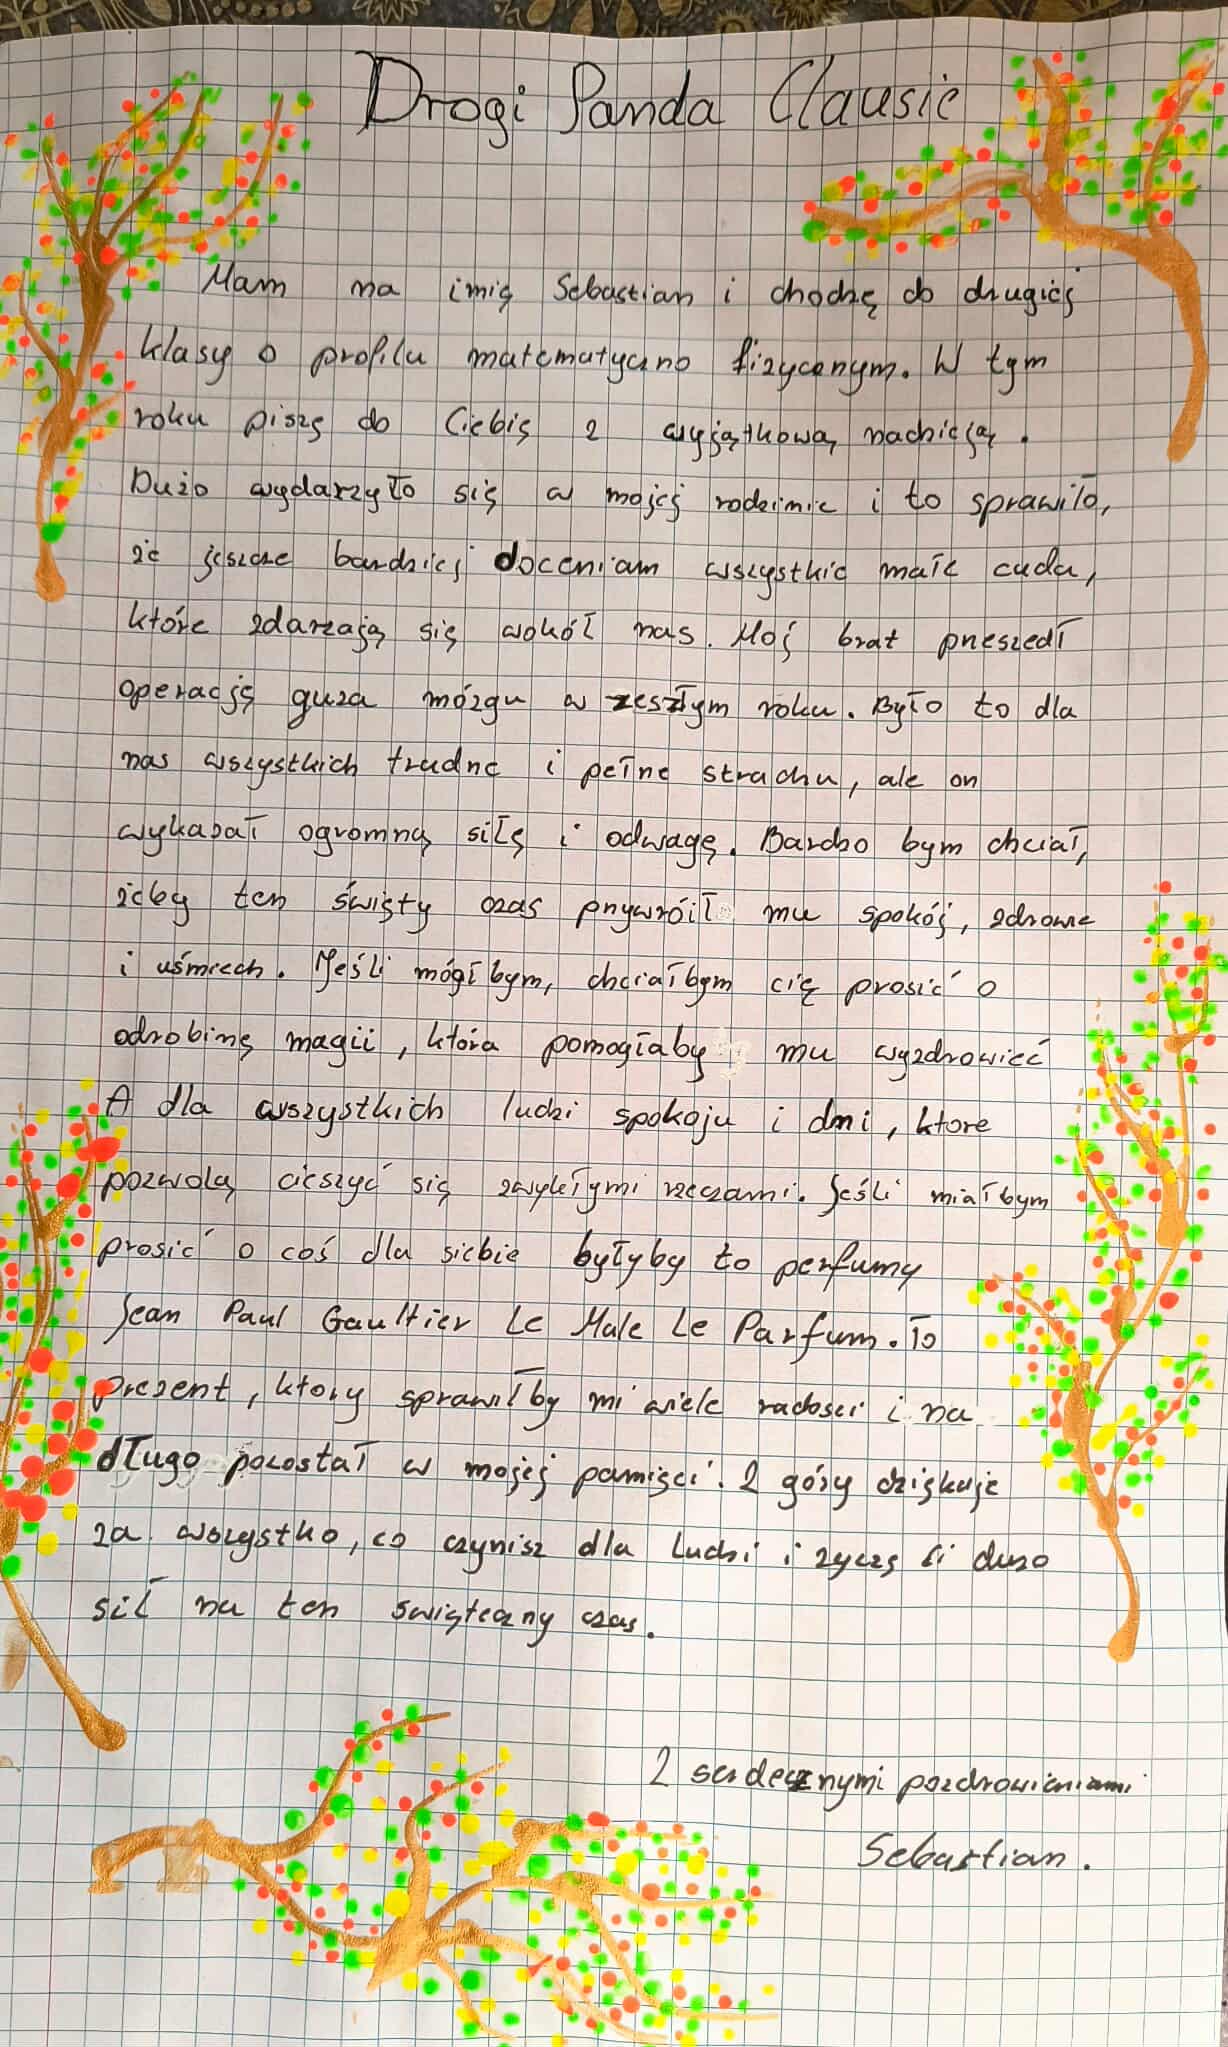 Drogi Panda Clausie
Mam na imię Sebastian i chodzę do drugiej
klasy o profilu matematyczno fizycznym. W tym
roku piszę do Ciebie z wyjątkową nadzieją.
Dużo wydarzyło się w mojej rodzinie i to sprawiło,
że jeszcze bardziej doceniam wszystkie małe cuda,
które zdarzają się wokół nas. Mój brat przeszedł
operację guza mózgu w zeszłym roku. Było to dla
nas wszystkich trudne i pełne strachu, ale on
wykazał ogromną siłę i odwagę. Bardzo bym chciał,
żeby ten święty czas przywrócił mu spokój, zdrowie
i uśmiech. Jeśli mógłbym, chciałbym cię prosić o
odrobinę magii, która pomogłaby mu wyzdrowieć
A dla wszystkich ludzi spokoju i dni, ktore
pozwolą cieszyć się zwykłymi rzeczami. Jeśli miałbym
prosić o coś dla siebie byłyby to perfumy
Jean Paul Gaultier Le Male Le Parfum. To
prezent, ktory sprawiłby mi wiele radosci i na
długo pozostał w mojej pamięci. Z góry dziękuje
za wszystko, co czynisz dla ludzi i zyczę Ci duzo
sił na ten swiąteczny czas.
Z serdecznymi pozdrowieniami
Sebastian.